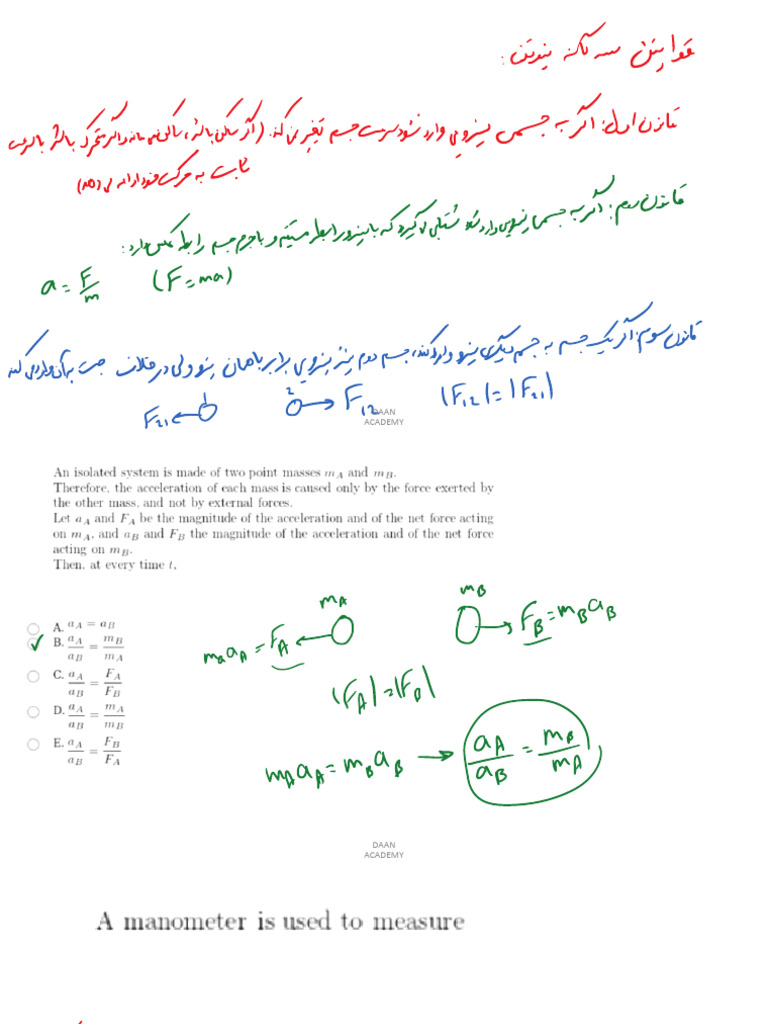 قوانین سه گانه نیوتن :
قانون اول: اگر به جسمی نیرویی وارد نشود سرعت جسم تغییر نمی کند. (اگر ساکن باشد، ساکن می ماند و اگر متحرک باشد با سرعت
ثابت به حرکت خود ادامه می دهد)
قانون دوم: اگر به جسمی نیرویی وارد شود شتابی می گیرد که با نیرو رابطه مستقیم و با جرم جسم رابطه عکس دارد:
a = F/m (F = ma)
قانون سوم: اگر یک جسم به جسم دیگری نیرو وارد کند، جسم دوم نیز نیرویی برابر با همان نیرو ولی در خلاف جهت به آن وارد می کند
F21 1 2 F12 |F12| = |F21|
DAAN
ACADEMY
An isolated system is made of two point masses mA and mB.
Therefore, the acceleration of each mass is caused only by the force exerted by
the other mass, and not by external forces.
Let aA and FA be the magnitude of the acceleration and of the net force acting
on mA, and aB and FB the magnitude of the acceleration and of the net force
acting on mB.
Then, at every time t,
A. aA = aB
B. aA/aB = mB/mA
C. aA/aB = FA/FB
D. aA/aB = mA/mB
E. aA/aB = FB/FA
mA mB
mAaA = FA FB = mBaB
|FA| = |FB|
mAaA = mBaB → aA/aB = mB/mA
DAAN
ACADEMY
A manometer is used to measure